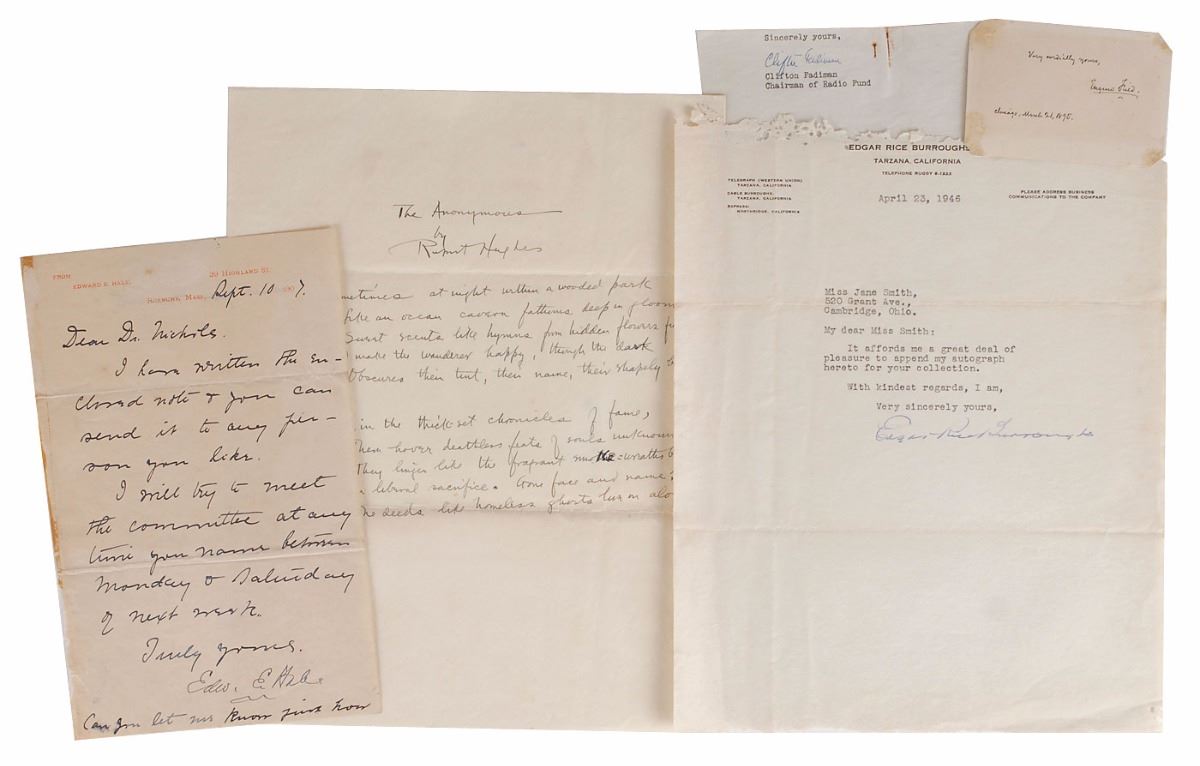 FROM
EDWARD E. HALE,
39 HIGHLAND ST.
ROXBURY, MASS., Sept. 10 1907.
Dear Dr. Nichols.
I have written the en-
closed note & you can
send it to any per-
son you like.
I will try to meet
the committee at any
time you name between
Monday & Saturday
of next week.
Truly yours.
Edw. E. Hale
Can you let me know just how
The Anonymous
by
Rupert Hughes
metimes at night within a wooded park
like an ocean cavern fathoms deep in gloom
Sweet scents like hymns from hidden flowers
make the wanderer happy, though the dark
Obscures their tint, their name, their shapely
in the thick-set chronicles of fame,
hover deathless feats of souls unknown
They linger like the fragrant smoke-wreaths
liberal sacrifice. Gone face and name;
he deeds like homeless ghosts live on alo
Sincerely yours,
Clifton Fadiman
Clifton Fadiman
Chairman of Radio Fund
Very cordially yours,
Eugene Field.
Chicago, March
EDGAR RICE BURROUGHS
TARZANA, CALIFORNIA
TELEPHONE RUGBY 6-1222
TELEGRAPH (WESTERN UNION)
TARZANA, CALIFORNIA
CABLE BURROUGHS:
TARZANA, CALIFORNIA
EXPRESS:
NORTHRIDGE, CALIFORNIA
April 23, 1946
PLEASE ADDRESS BUSINESS
COMMUNICATIONS TO THE COMPANY
Miss Jane Smith,
520 Grant Ave.,
Cambridge, Ohio.
My dear Miss Smith:
It affords me a great deal of
pleasure to append my autograph
hereto for your collection.
With kindest regards, I am,
Very sincerely yours,
Edgar Rice Burroughs